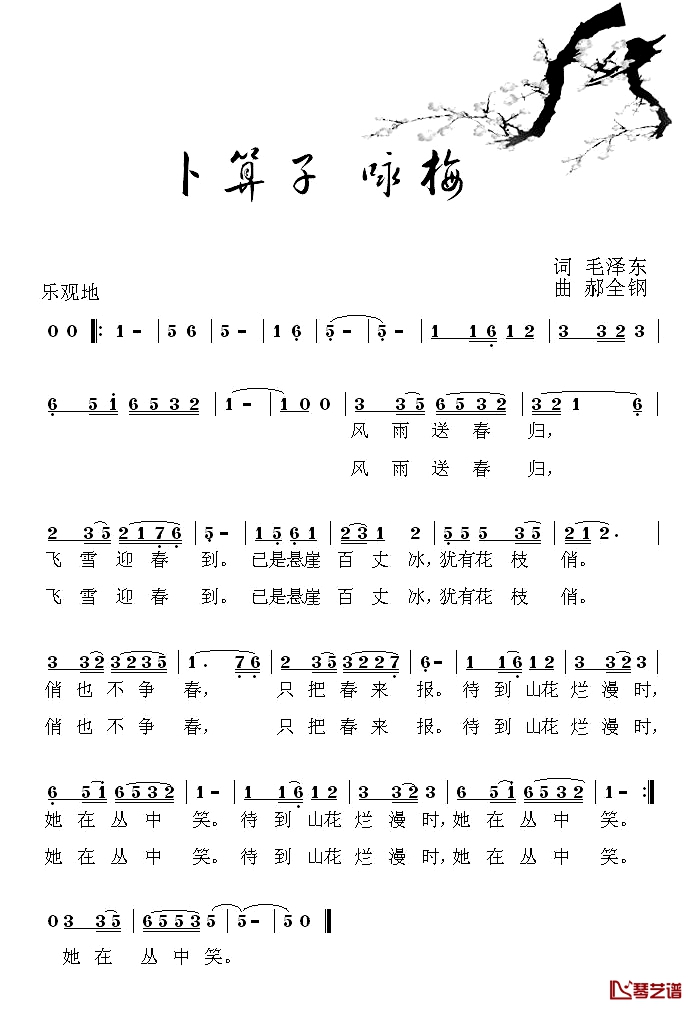 卜算子 咏梅
词 毛泽东
乐观地
曲 郝全钢
0 0 ‖: 1 - | 5 6 | 5 - | 1 6 | 5 - | 5 - | 1 1 6 1 2 | 3 3 2 3 |
6 5 1 6 5 3 2 | 1 - | 1 0 0 | 3 3 5 6 5 3 2 | 3 2 1 6 |
风 雨 送 春 归，
风 雨 送 春 归，
2 3 5 2 1 7 6 | 5 - | 1 5 6 1 | 2 3 1 2 | 5 5 5 3 5 | 2 1 2 . |
飞 雪 迎 春 到。 已是悬崖 百 丈 冰，犹有花 枝 俏。
飞 雪 迎 春 到。 已是悬崖 百 丈 冰，犹有花 枝 俏。
3 3 2 3 2 3 5 | 1 . 7 6 | 2 3 5 3 2 2 7 | 6 - | 1 1 6 1 2 | 3 3 2 3 |
俏 也 不 争 春， 只 把 春 来 报。待 到 山花 烂 漫 时，
俏 也 不 争 春， 只 把 春 来 报。待 到 山花 烂 漫 时，
6 5 1 6 5 3 2 | 1 - | 1 1 6 1 2 | 3 3 2 3 | 6 5 1 6 5 3 2 | 1 - :‖
她 在 丛 中 笑。待 到 山花 烂 漫 时，她 在 丛 中 笑。
她 在 丛 中 笑。待 到 山花 烂 漫 时，她 在 丛 中 笑。
0 3 3 5 | 6 5 5 3 5 | 5 - | 5 0 ‖
她 在 丛 中 笑。
飞琴艺谱